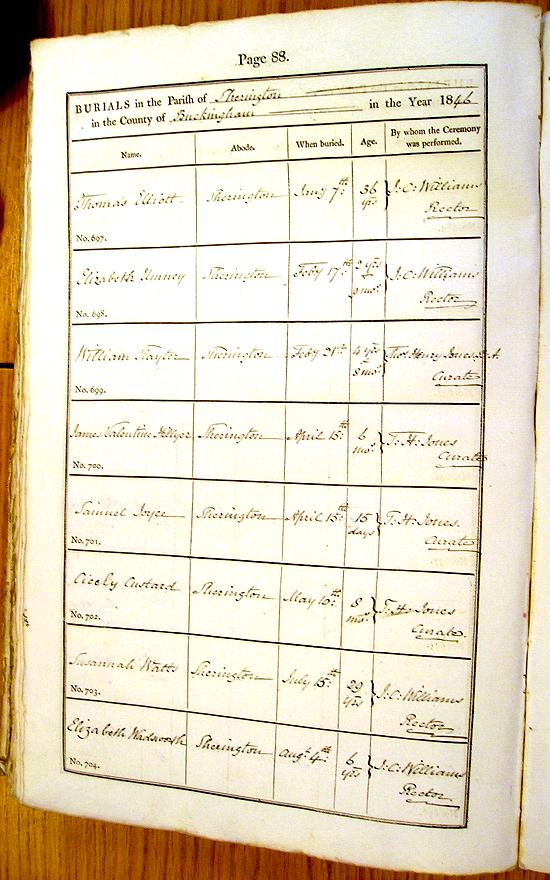 Page 88.
BURIALS in the Parish of Sherington
in the County of Buckingham in the Year 1846
Name. Abode. When buried. Age. By whom the Ceremony was performed.
Thomas Elliott Sherington Jany 7th 36 yrs J.C. Williams Rector
No. 697.
Elizabeth Umney Sherington Feby 17th yrs mos J.C. Williams Rector
No. 698.
William Sherington Feby 21st 4 yrs 8 mos Thos Henry Jones Curate
No. 699.
James Valentine Hillyer Sherington April 15th 6 mos T.H. Jones Curate
No. 700.
Samuel Joyce Sherington April 15th 15 days T.H. Jones. Curate
No. 701.
Cicely Custard Sherington May 10th 8 mos T.H. Jones Curate.
No. 702.
Susannah Watts Sherington July 15th 29 yrs J.C. Williams Rector
No. 703.
Elizabeth Wadsworth Sherington Augt 4th 6 yrs J.C. Williams Rector
No. 704.